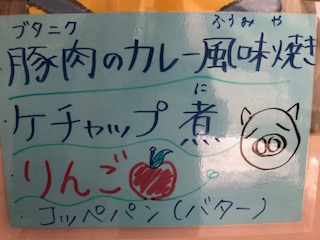 ブタニク ふうみ や
豚肉のカレー風味焼き
に
ケチャップ煮
りんご
コッペパン(バター)